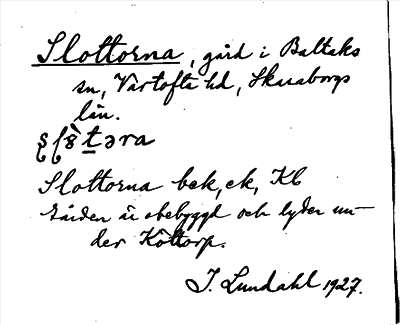 Slottorna, gård i Baltaks
sn, Vartofta hd, Skaraborgs
län.
Slottorna bek, ek, Kb
Gården är obebyggd och lyder un-
der Kottorp.
I. Lundahl 1927.